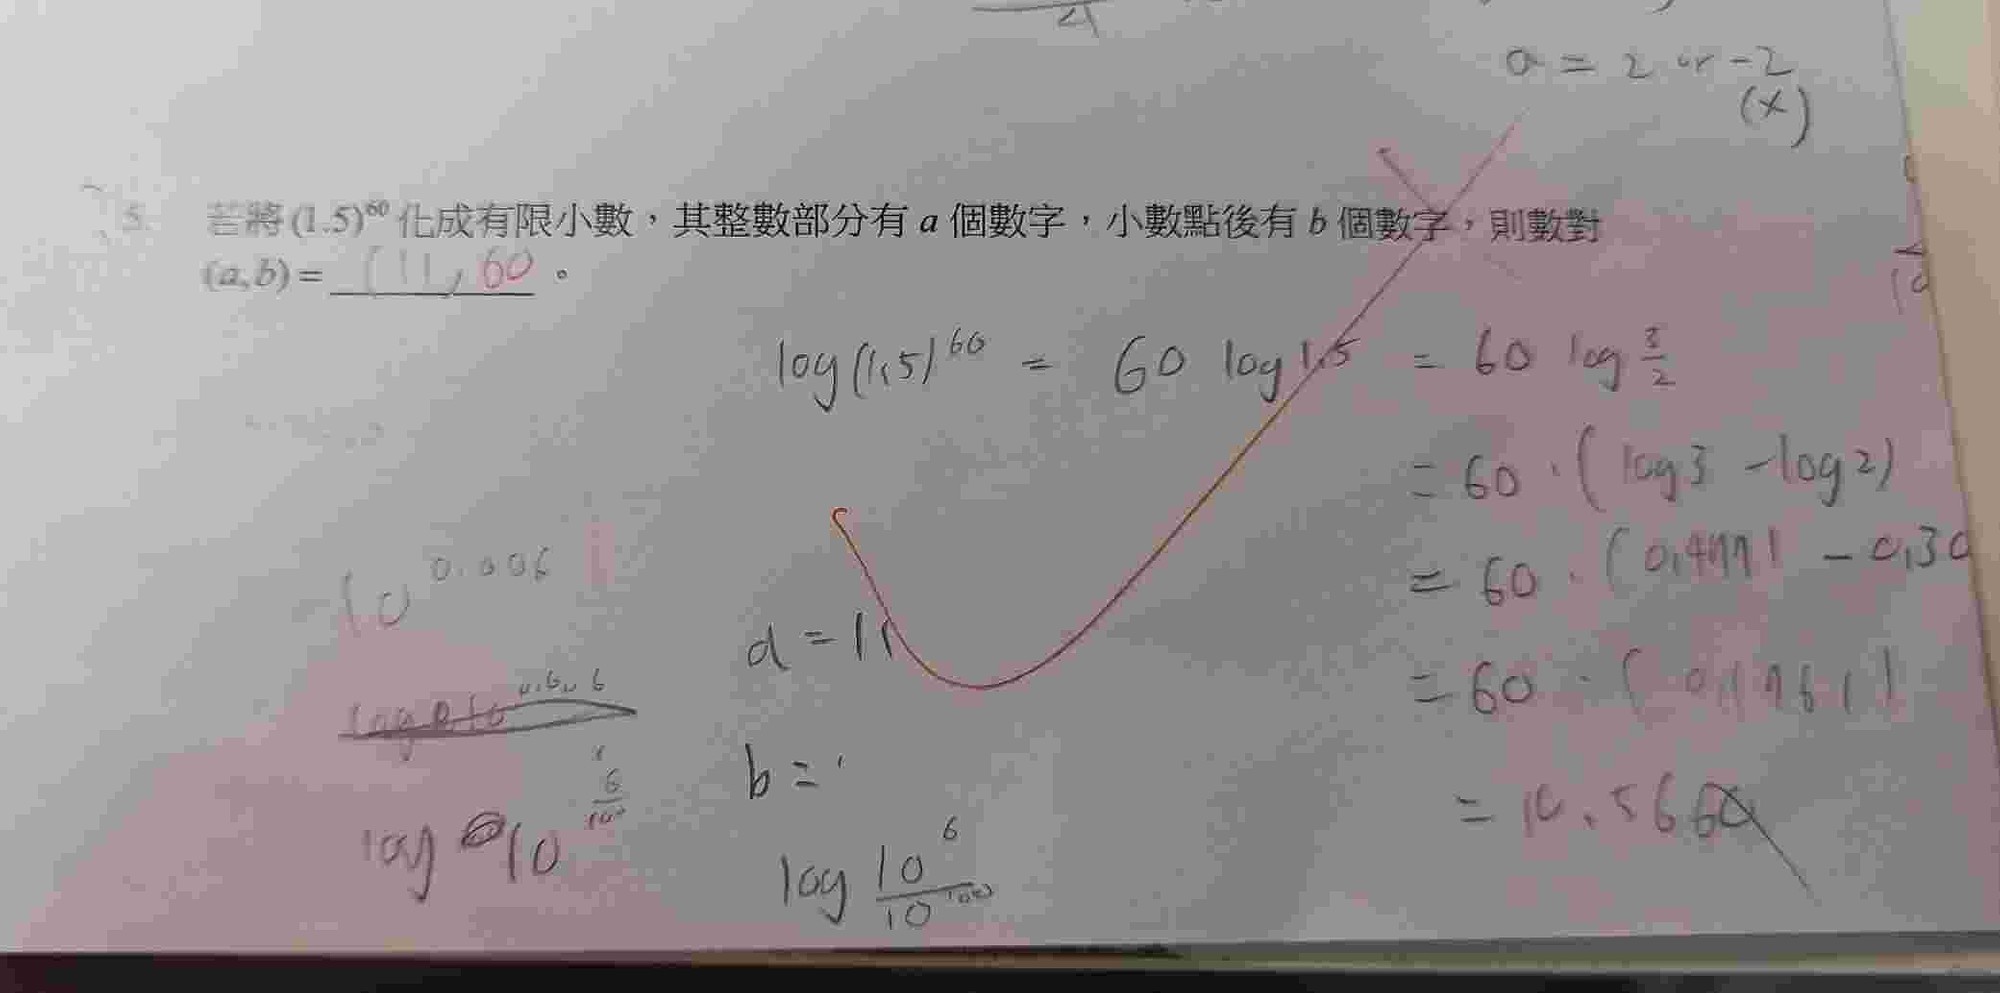 a = 2 or -2
(×)
5. 若將 (1.5)⁶⁰ 化成有限小數，其整數部分有 a 個數字，小數點後有 b 個數字，則數對
(a,b) = (11, 60 。
log(1.5)⁶⁰ = 60 log1.5 = 60 log 3/2
= 60 · (log3 - log2)
= 60 · (0.4771 - 0.30
= 60 · (0.1761)
= 10.566
10^0.006
a = 11
b =
log 10^6/10^100